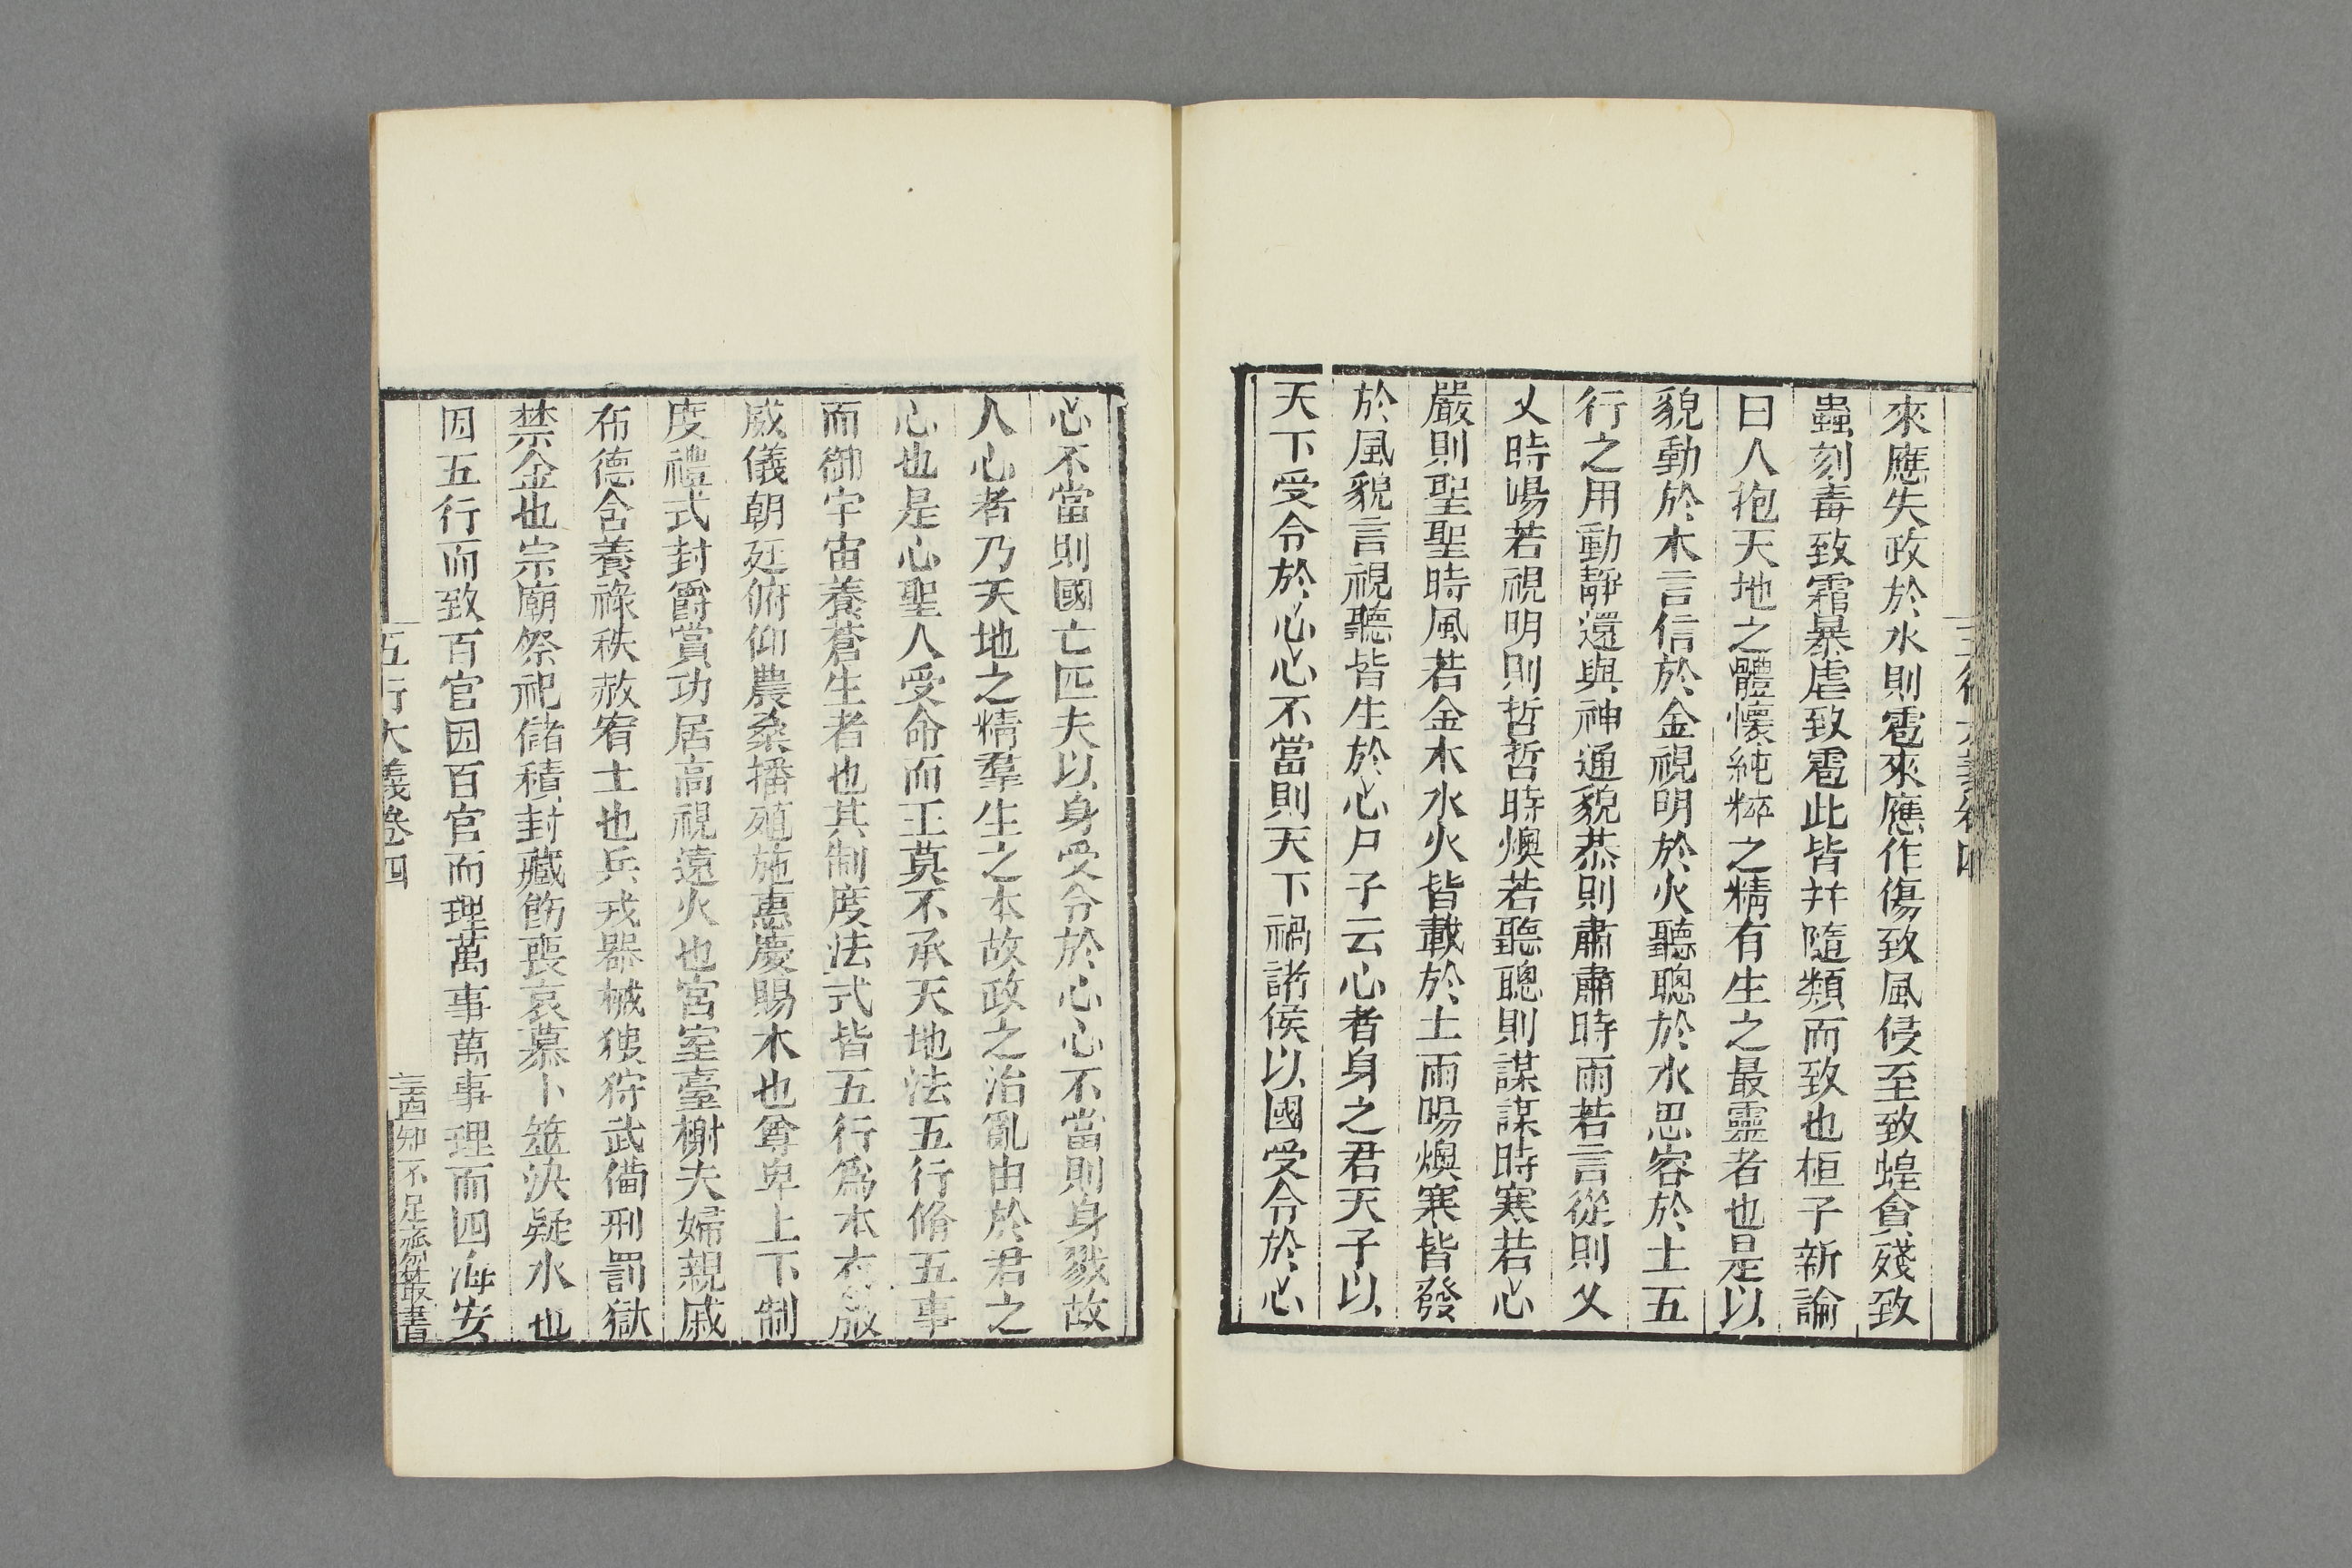 來應失政於水則雹來應作傷致風侵至致蝗貪殘致
蟲刻毒致霜暴虐致雹此皆并隨類而致也桓子新論
曰人抱天地之體懷純粹之精有生之最靈者也是以
貌動於木言信於金視明於火聽聰於水思容於土五
行之用動靜還與神通貌恭則肅肅時雨若言從則乂
乂時暘若視明則哲哲時燠若聽聰則謀謀時寒若心
嚴則聖聖時風若金木水火皆載於土雨暘燠寒皆發
於風貌言視聽皆生於心尸子云心者身之君天子以
天下受令於心心不當則天下禍諸侯以國受令於心
心不當則國亡匹夫以身受令於心心不當則身戮故
人心者乃天地之精羣生之本故政之治亂由於君之
心也是心聖人受命而王莫不承天地法五行脩五事
而御宇宙養蒼生者也其制度法式皆五行爲本衣服
威儀朝廷俯仰農桑播殖施惠慶賜木也尊卑上下制
度禮式封爵賞功居高視遠火也宮室臺榭夫婦親戚
布德含養祿秩赦宥土也兵戎器械狻狩武備刑罰獄
禁金也宗廟祭祀儲積封藏飭喪哀慕卜筮決疑水也
因五行而致百官因百官而理萬事萬事理而四海安
五行大義卷四
知不足齋叢書